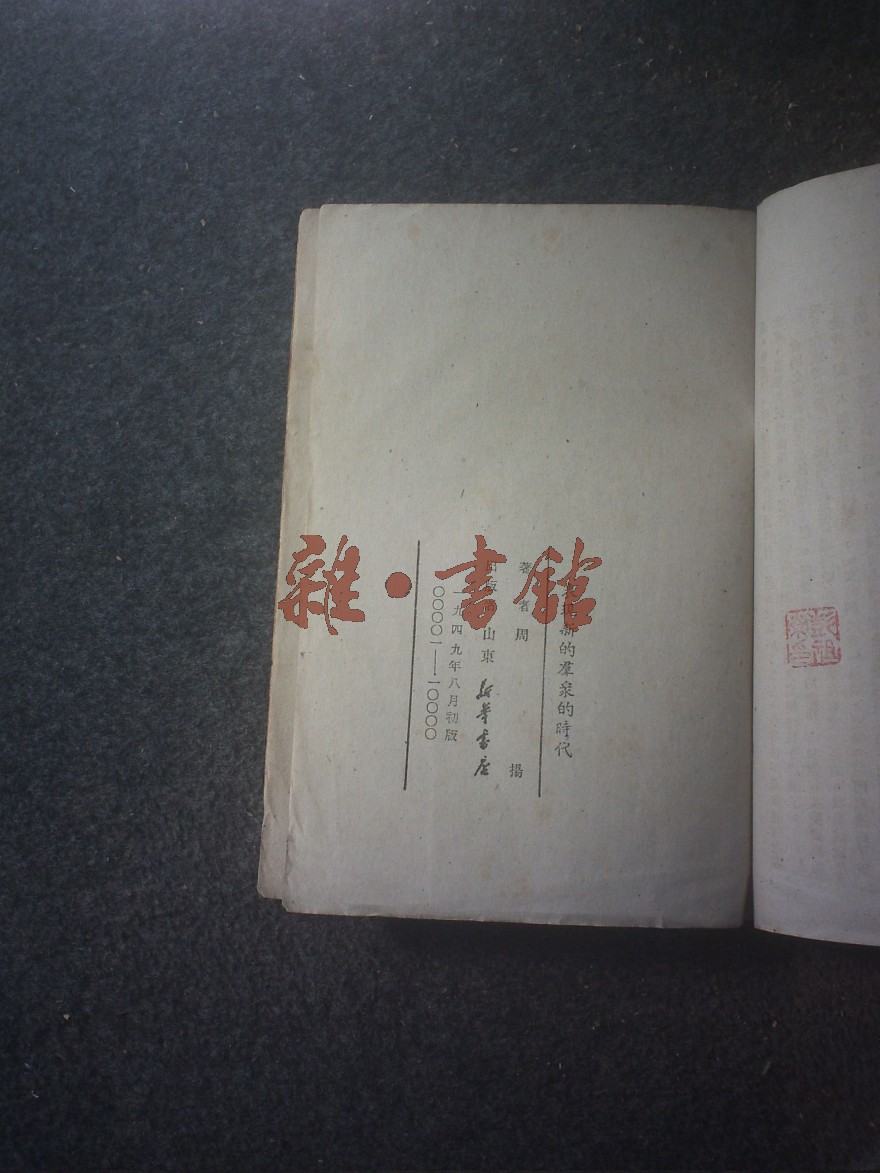 表現新的羣衆的時代
著者 周 揚
出版 山東新華書店
一九四九年八月初版
〇〇〇〇一——一〇〇〇〇
雜·書館